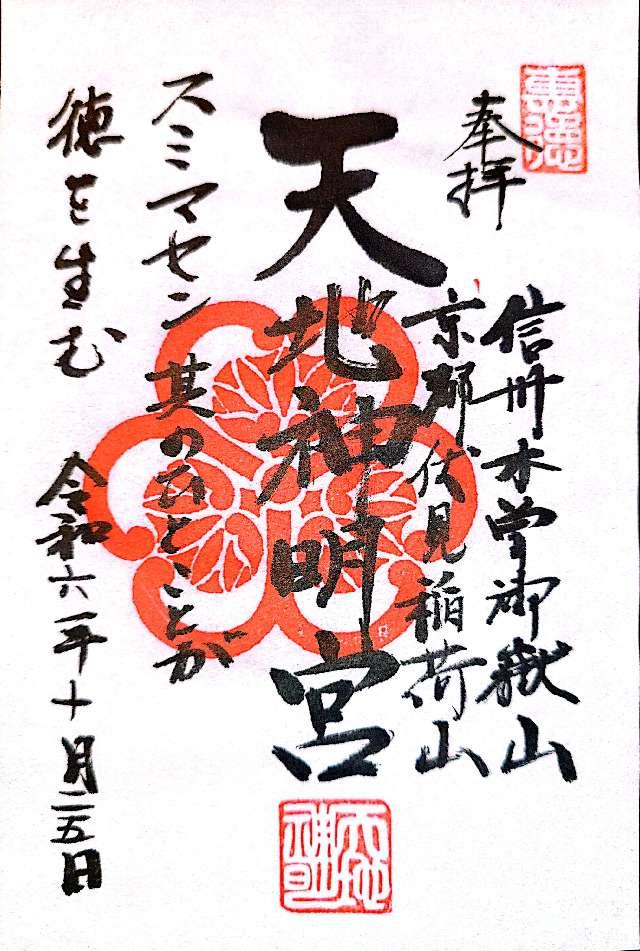 奉拝
信州木曽御嶽山
京都伏見稲荷山
天地神明宮
スミマセン其の云とことが
徳を生む
令和六年十月二五日
天地神明